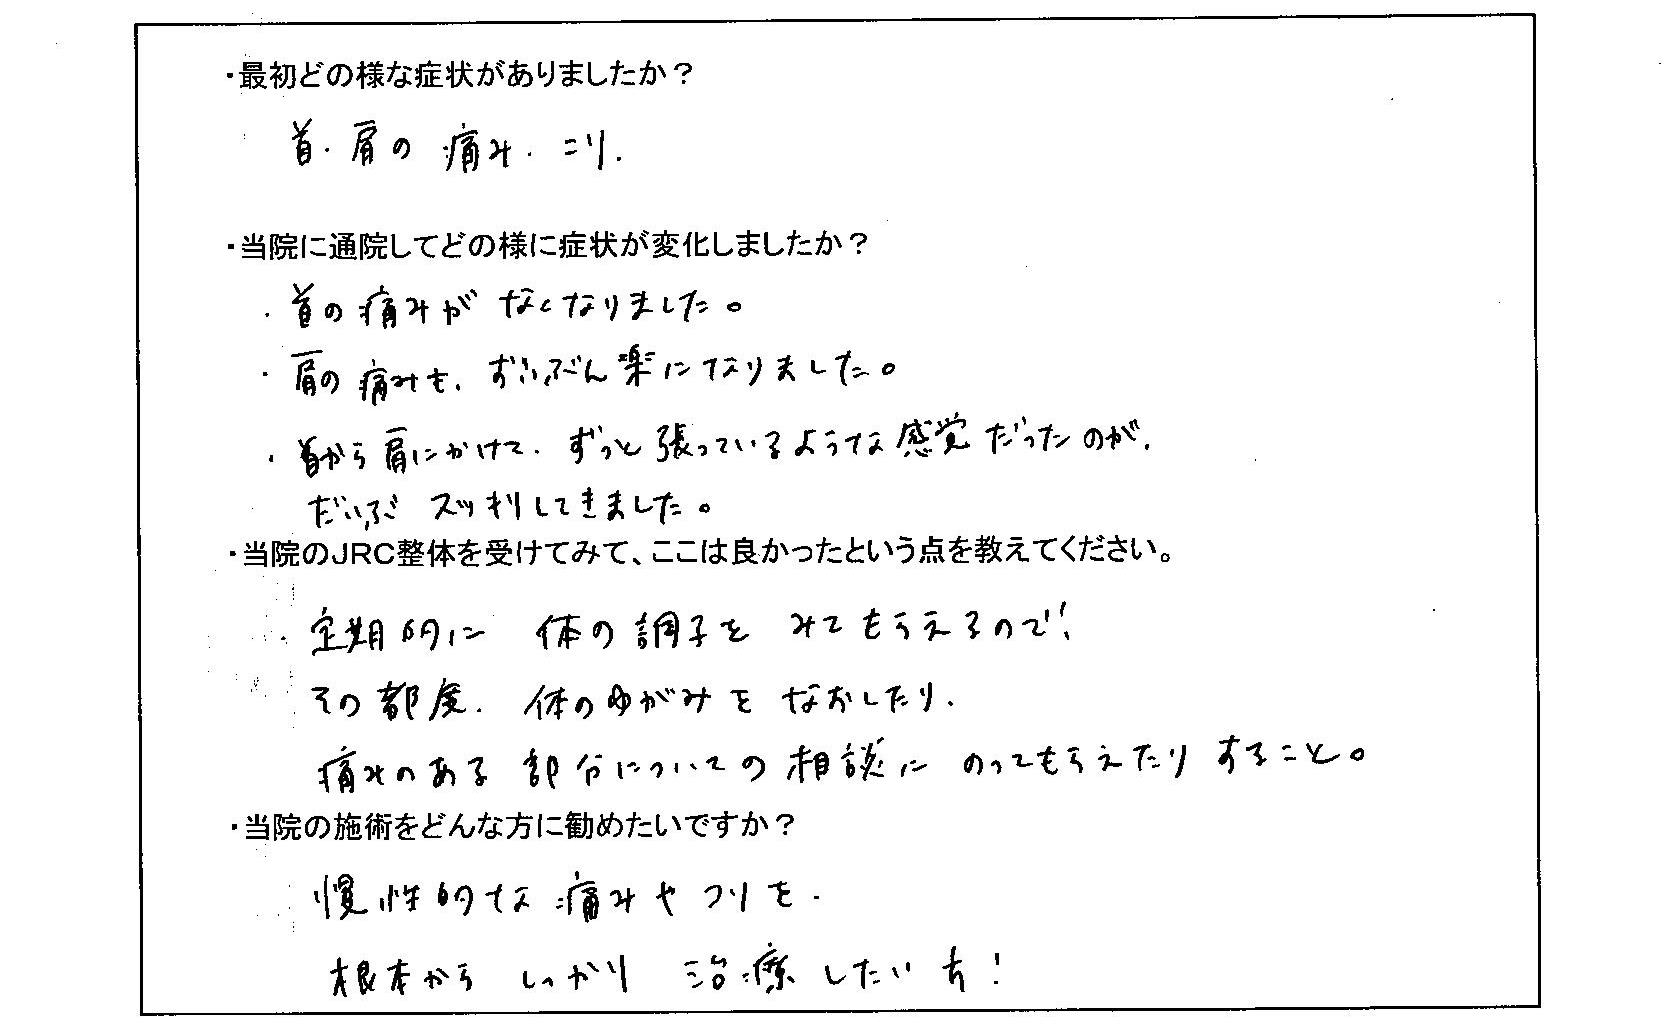 ・最初どの様な症状がありましたか？
首．肩の 痛み．こり．
・当院に通院してどの様に症状が変化しましたか？
・首の痛みが なくなりました。
・肩の痛みも、ずいぶん楽になりました。
・首から肩にかけて、ずっと張っているような感覚だったのが、
だいぶ スッキリしてきました。
・当院のJRC整体を受けてみて、ここは良かったという点を教えてください。
・定期的に 体の調子を みてもらえるので、
その都度、体のゆがみを なおしたり、
痛みのある 部分についての 相談に のってもらえたりすること。
・当院の施術をどんな方に勧めたいですか？
慢性的な 痛みや コリを、
根本から しっかり 治療したい方！